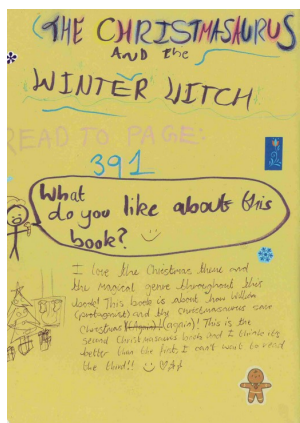 THE CHRISTMASAURUS
AND the
WINTER WITCH
READ TO PAGE:
391
What
do you like about this
book?
I love the Christmas theme and
the magical genre throughout this
book! This book is about how William
(protagonist) and the christmasaurus save
Christmas (again)! This is the
second Christmasaurus book and I think it's
better than the first. I can't wait to read
the third!!